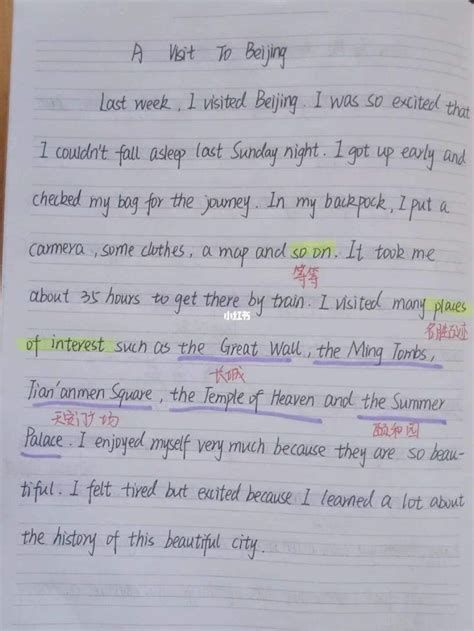 A Visit To Beijing
Last week, I visited Beijing. I was so excited that
I couldn't fall asleep last Sunday night. I got up early and
checked my bag for the journey. In my backpock, I put a
carmera, some clothes, a map and so on. It took me
等等
about 35 hours to get there by train. I visited many places
小红书
名胜古迹
of interest such as the Great Wall, the Ming Tombs,
长城
Tian'anmen Square, the Temple of Heaven and the Summer
天安门广场
颐和园
Palace. I enjoyed myself very much because they are so beau-
tiful. I felt tired but excited because I learned a lot about
the history of this beautiful city.